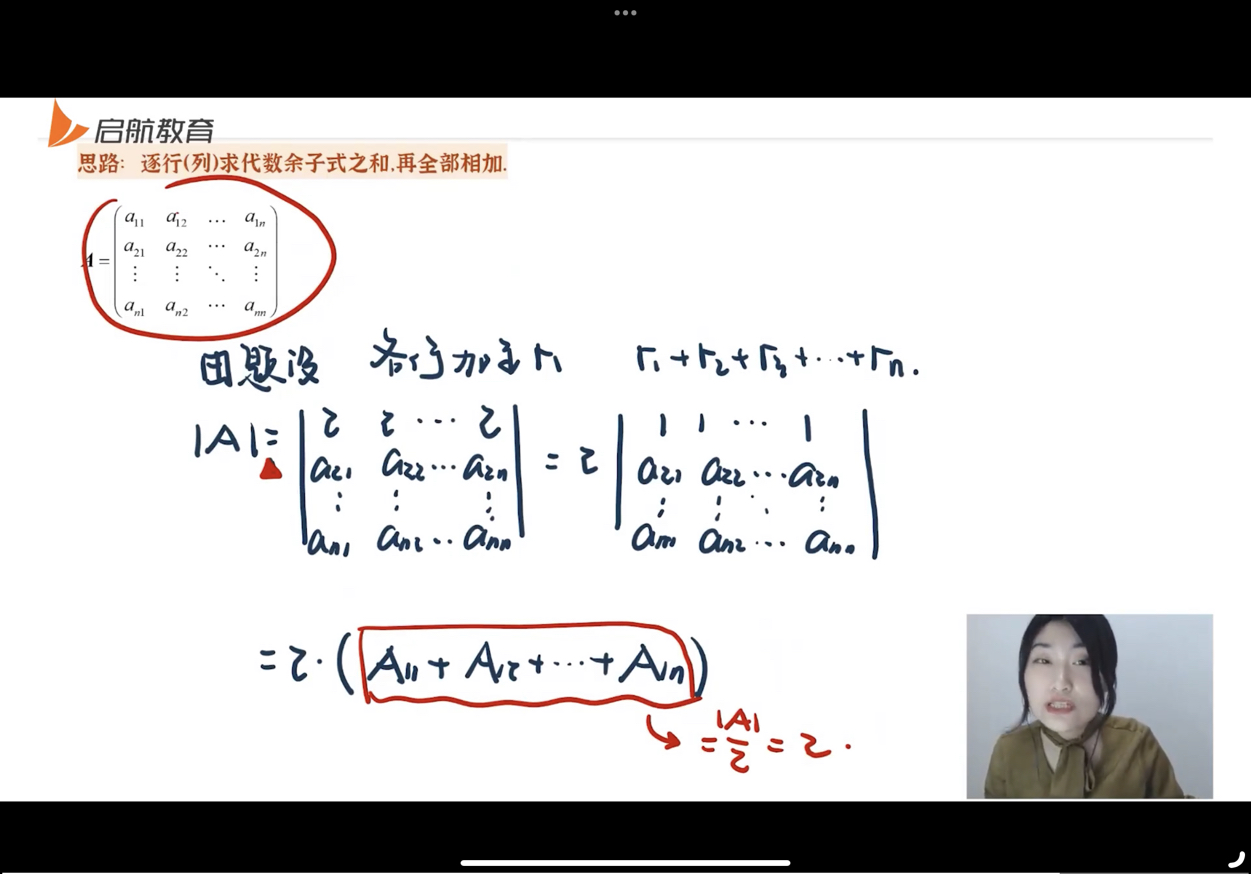 启航教育
思路: 逐行(列)求代数余子式之和,再全部相加.
A = ( a₁₁ a₁₂ ⋯ a₁ₙ
a₂₁ a₂₂ ⋯ a₂ₙ
⋮ ⋮ ⋱ ⋮
aₙ₁ aₙ₂ ⋯ aₙₙ )
由题设 各行加至 r₁ r₁+r₂+r₃+⋯+rₙ.
|A| = | 2 2 ⋯ 2 | = 2 | 1 1 ⋯ 1 |
a₂₁ a₂₂ ⋯ a₂ₙ a₂₁ a₂₂ ⋯ a₂ₙ
⋮ ⋮ ⋮ ⋮ ⋮ ⋱ ⋮
aₙ₁ aₙ₂ ‥ aₙₙ aₙ₁ aₙ₂ ⋯ aₙₙ
= 2·( A₁₁ + A₁₂ + ⋯ + A₁ₙ )
= |A|/2 = 2.